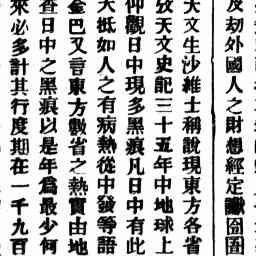 及刧外國人之財想經定讞囹圄
大文生沙維士稱說現東方各省
攷天文史記三十五年中地球上
仰觀日中現多黑痕凡日中有此
大抵如人之有病熱從中發等語
金巴又言東方數省之熱實由地
查日中之黑痕以是年爲最少何
來必多計其行度期在一千九百